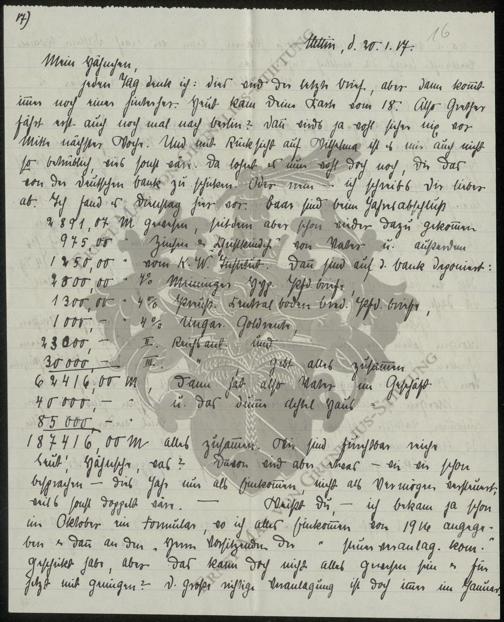 17)
16
Stettin, d. 20.1.17.
Mein Häschen,
jeden Tag denke ich: dies wird der letzte Brief, aber dann kommt
immer noch einer hinterher. Heut kam Deine Karte vom 18. Also
fährt erst auch noch mal nach Berlin? Dann wirds ja wohl sicher nix vor
Mitte nächster Woche. Und mit Rücksicht auf ist es mir auch nicht
so betrüblich wies sonst wär. Da lohnt es nun wohl doch noch, Dir das
von der Deutschen Bank zu schicken. Oder nein - ich schreibs Dir lieber
ab. Ich fand es Dienstag hier vor. Baar sind beim Jahresabschluß
2891,07 M gewesen, seitdem aber schon wieder dazu gekommen
975,00 " Zinsen u. von Vater u. außerdem
1250,00 " vom K.W. Institut. Dann sind auf d. Bank deponiert:
2800,00 " 4% Meininger Hyp. Pfd. briefe,
1300,00 " 4% Preuß. Central boden cred. Pfd. briefe,
1000,- " 4% Ungar. Goldrente,
23000,- " II. Kriegsanl. und
30000,- " III. " gibt alles zusammen
62416,00 M Dann hab also Vater im Geschäft
40000,- " u. das dumme Haus
85000,- "
187416,00 M alles zusammen. Wir sind furchtbar reiche
Leut', Häschen, was? Davon wird aber etwas - wie wir schon
besprachen - dies Jahr nur als Einkommen nicht als Vermögen versteuert
weils sonst doppelt wär. — Weißt Du, - ich bekam ja schon
im Oktober ein Formular, wo ich alles Einkommen von 1916 angege-
ben u. dann an den "Herrn Vorsitzenden der " Steuerveranlag. kom."
geschickt habe, aber das kann doch nicht alles gewesen sein u. für
jetzt mit genügen? D. große richtige Veranlagung ist doch immer im Januar,